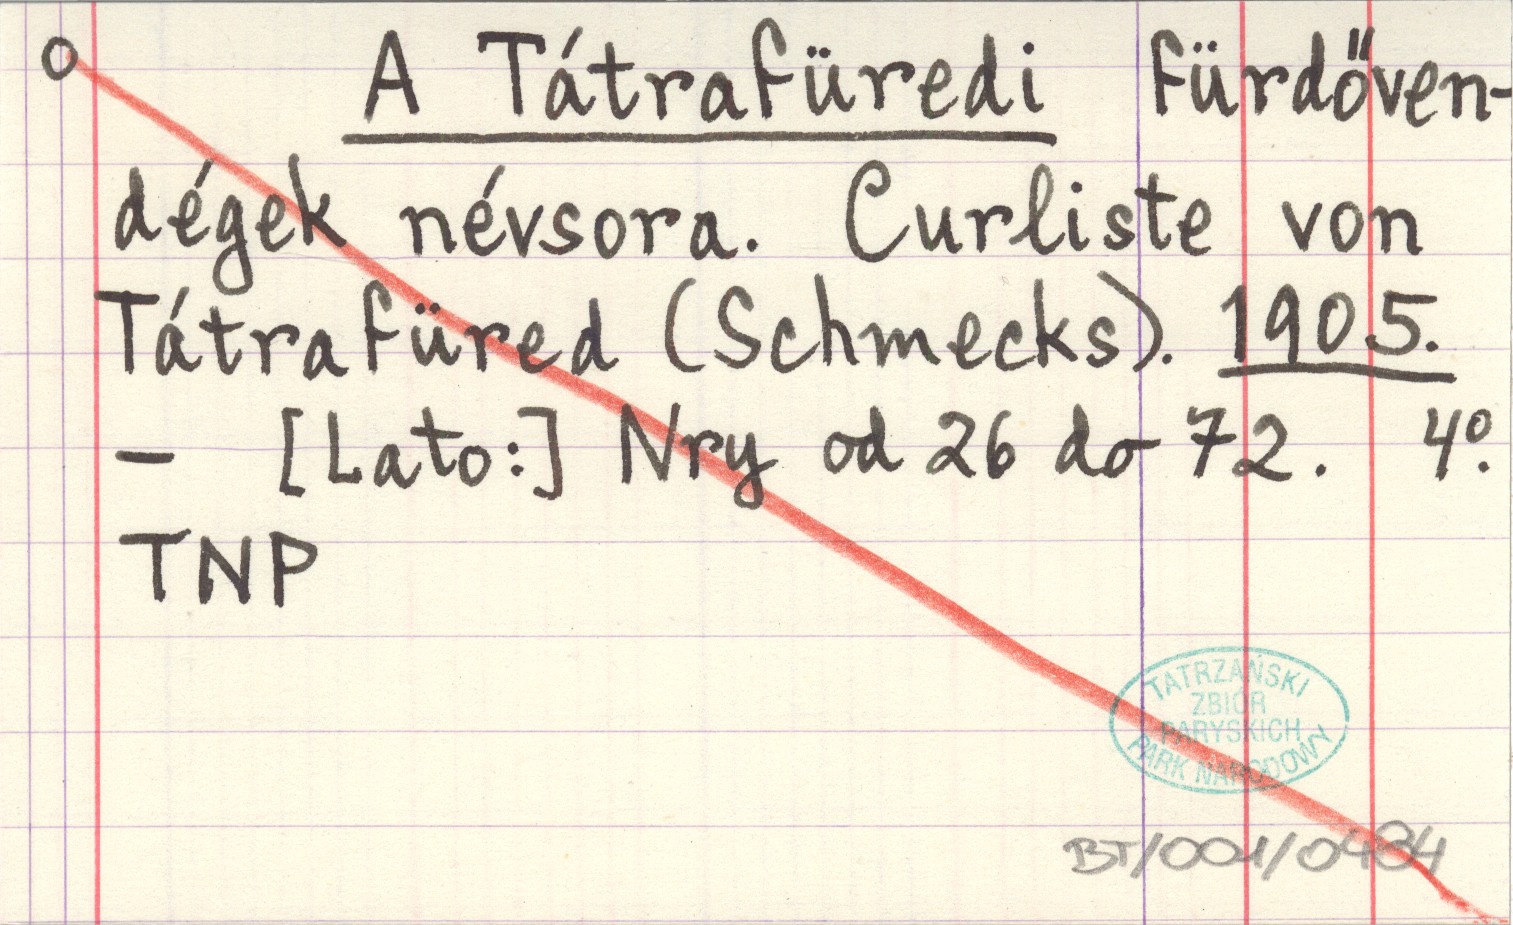 O A Tátrafüredi fürdőven-
dégek névsora. Curliste von
Tátrafüred (Schmecks). 1905.
— [Lato:] Nry od 26 do 72. 4º.
TNP
TATRZAŃSKI
ZBIÓR
PARYSKICH
PARK NARODOWY
BT/001/0484